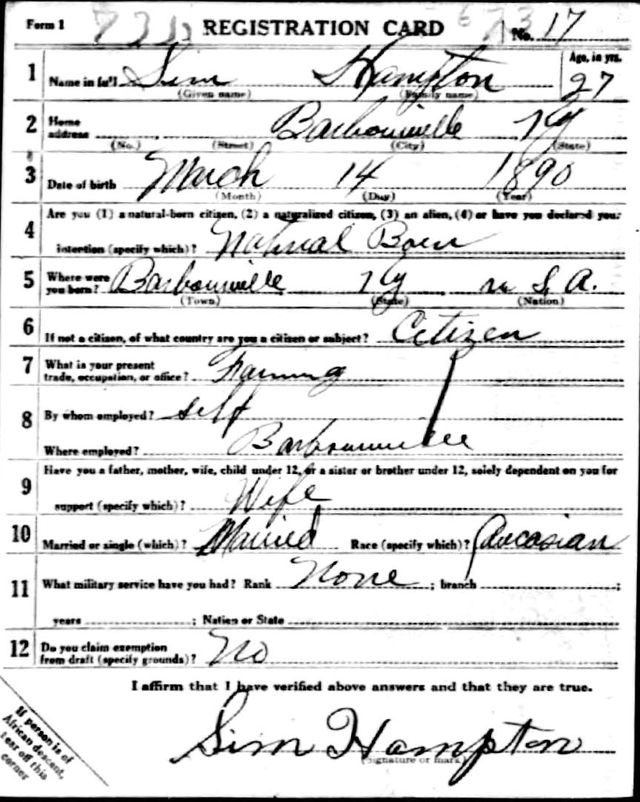 Form 1 REGISTRATION CARD No. 17
1 Name in full Sim Hampton Age, in yrs. 27
(Given name) (Family name)
2 Home address Barbourville Ky
(No.) (Street) (City) (State)
3 Date of birth March 14 1890
(Month) (Day) (Year)
4 Are you (1) a natural-born citizen, (2) a naturalized citizen, (3) an alien, (4) or have you declared your
intention (specify which)? Natural Born
5 Where were you born? Barbourville Ky U S. A.
(Town) (State) (Nation)
6 If not a citizen, of what country are you a citizen or subject? Citizen
7 What is your present trade, occupation, or office? Farming
8 By whom employed? self
Where employed? Barbourville
9 Have you a father, mother, wife, child under 12, or a sister or brother under 12, solely dependent on you for
support (specify which)? Wife
10 Married or single (which)? Married Race (specify which)? Caucasian
11 What military service have you had? Rank None ; branch ;
years ; Nation or State
12 Do you claim exemption from draft (specify grounds)? No
I affirm that I have verified above answers and that they are true.
Sim Hampton
(Signature or mark)
If person is of
African descent,
tear off this
corner